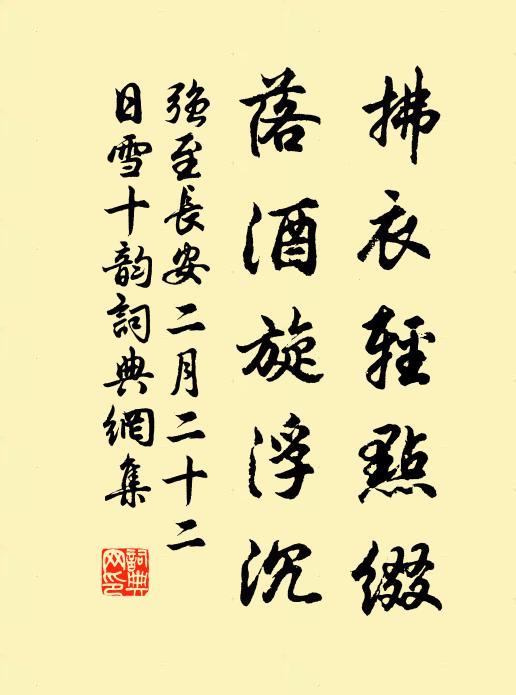 拂衣輕點綴
落酒旋浮沉
強至長安二月二十二
日雪十韵詞典網集
詞典
网印